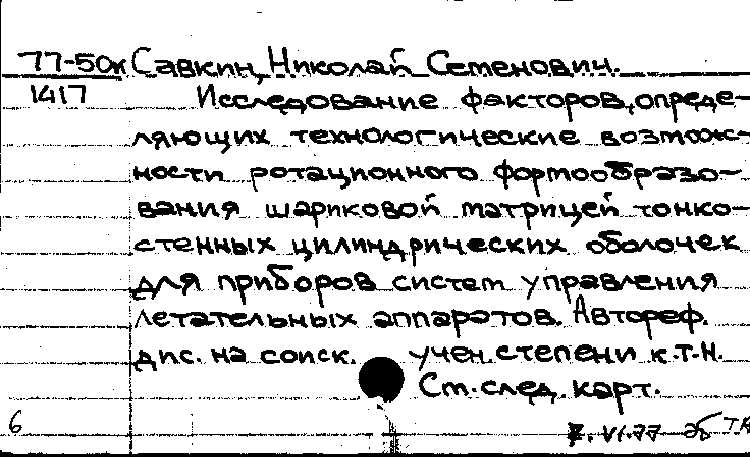 77-50к Савкин, Николай Семенович.
1417 Исследование факторов, опреде-
ляющих технологические возмож-
ности ротационного формообразо-
вания шариковой матрицей тонко-
стенных цилиндрических оболочек
для приборов систем управления
летательных аппаратов. Автореф.
дис. на соиск. учен. степени к.т.н.
См. след. карт.
6 7.VI.77